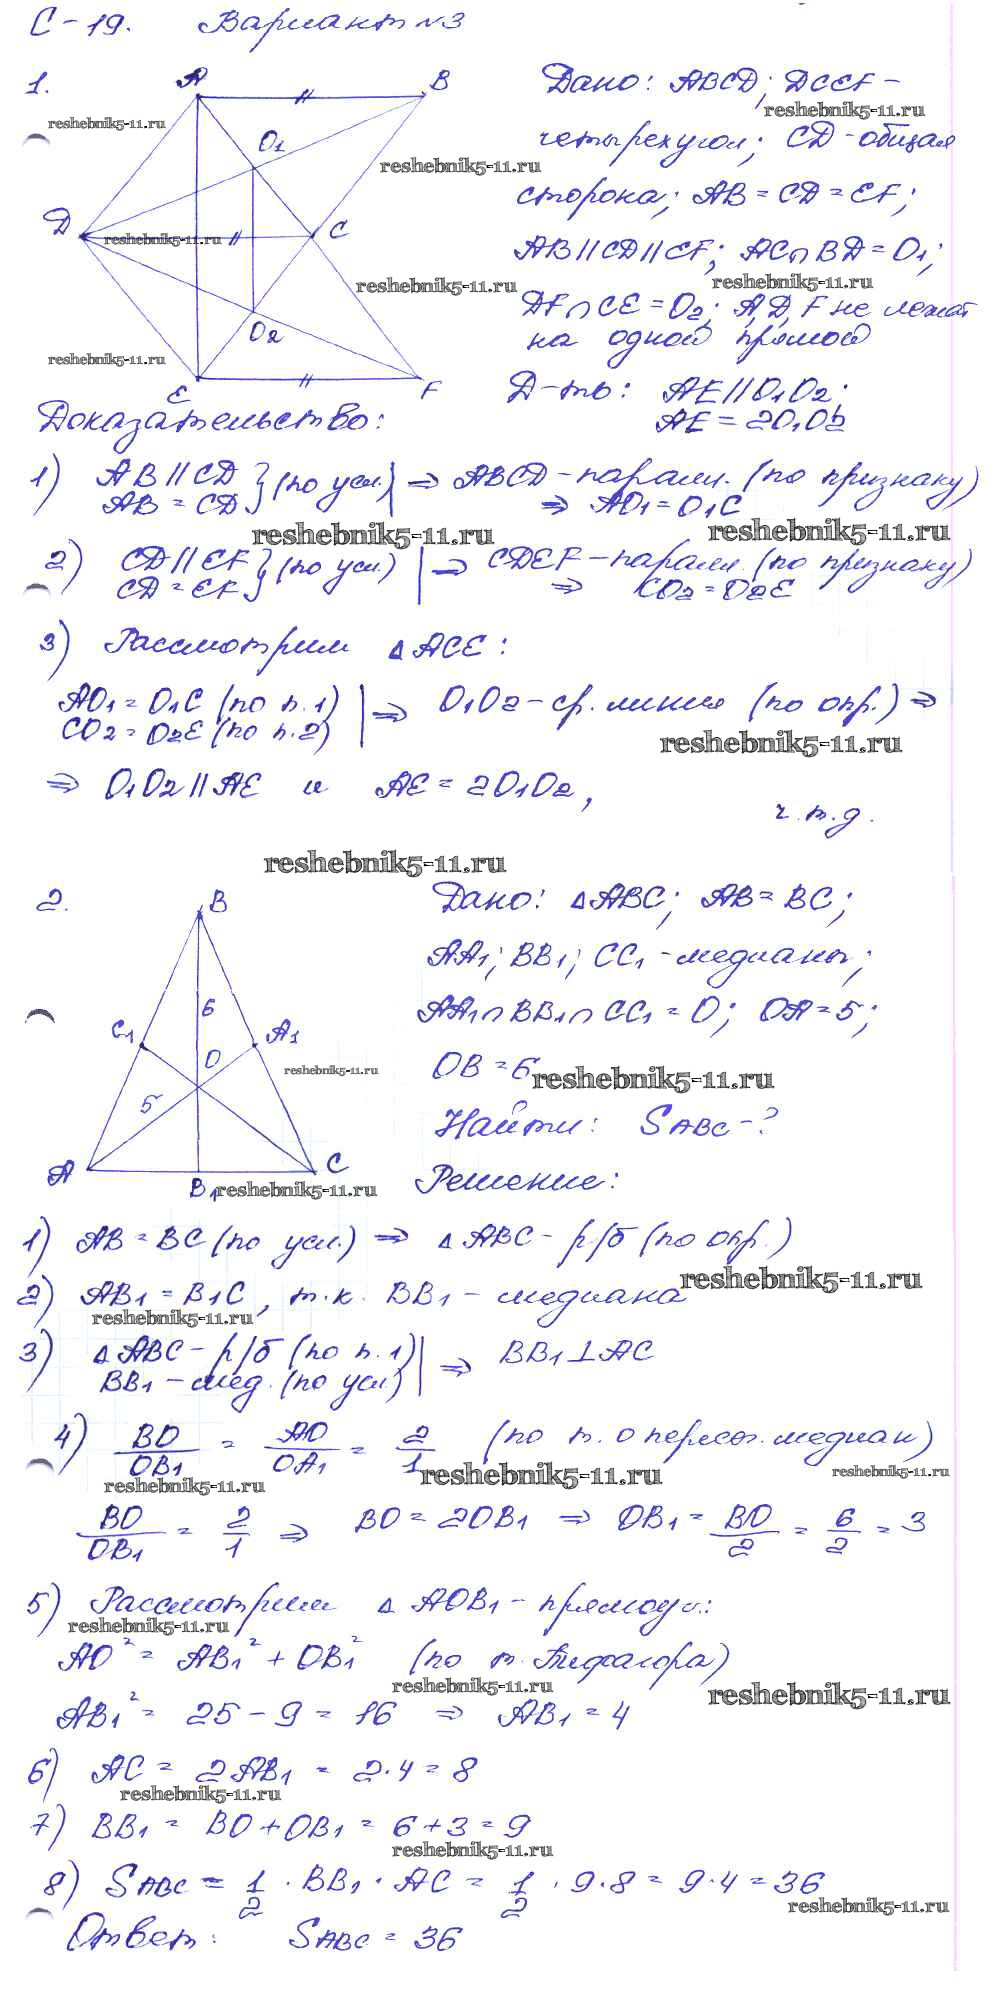 С-19. Вариант №3
1.
A
B
O1
D
C
O2
E
F
Дано: ABCD; DCEF -
четырехугол; CD - общая
сторона; AB = CD = EF;
AB || CD || EF; AC ∩ BD = O1;
DF ∩ CE = O2; A, D, F не лежат
на одной прямой
Д-ть: AE || O1O2;
AE = 2O1O2
Доказательство:
1) AB || CD
AB = CD } (по усл.) | ⇒ ABCD - паралл. (по признаку)
⇒ AO1 = O1C
2) CD || EF
CD = EF } (по усл.) | ⇒ CDEF - паралл. (по признаку)
⇒ CO2 = O2E
3) Рассмотрим △ACE:
AO1 = O1C (по п.1)
CO2 = O2E (по п.2) | ⇒ O1O2 - ср. линия (по опр.) ⇒
⇒ O1O2 || AE и AE = 2O1O2,
ч.т.д.
2.
B
6
C1
A1
O
5
A
B1
C
Дано: △ABC; AB = BC;
AA1; BB1; CC1 - медианы;
AA1 ∩ BB1 ∩ CC1 = O; OA = 5;
OB = 6
Найти: SABC - ?
Решение:
1) AB = BC (по усл.) ⇒ △ABC - р/б (по опр.)
2) AB1 = B1C, т.к. BB1 - медиана
3) △ABC - р/б (по п.1)
BB1 - мед. (по усл) | ⇒ BB1 ⊥ AC
4) BO/OB1 = AO/OA1 = 2/1 (по т. о пересеч. медиан)
BO/OB1 = 2/1 ⇒ BO = 2OB1 ⇒ OB1 = BO/2 = 6/2 = 3
5) Рассмотрим △AOB1 - прямоуг.:
AO² = AB1² + OB1² (по т. Пифагора)
AB1² = 25 - 9 = 16 ⇒ AB1 = 4
6) AC = 2AB1 = 2·4 = 8
7) BB1 = BO + OB1 = 6 + 3 = 9
8) SABC = 1/2 · BB1 · AC = 1/2 · 9·8 = 9·4 = 36
Ответ: SABC = 36
reshebnik5-11.ru